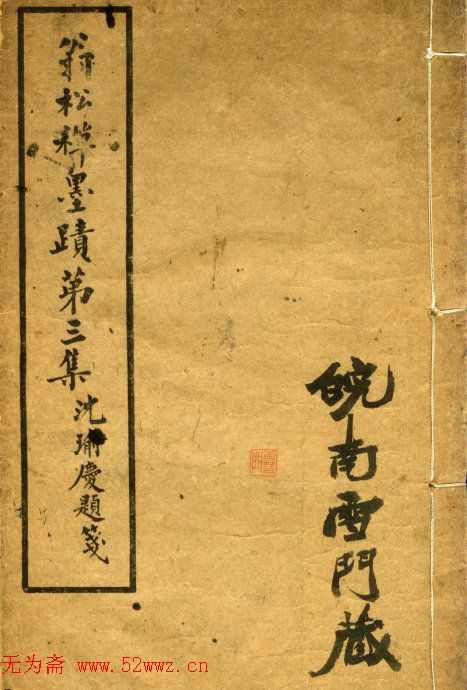 皖南雪門藏
翁松禪墨蹟第三集 沈瑜慶題箋
无为斋 www.52wwz.cn